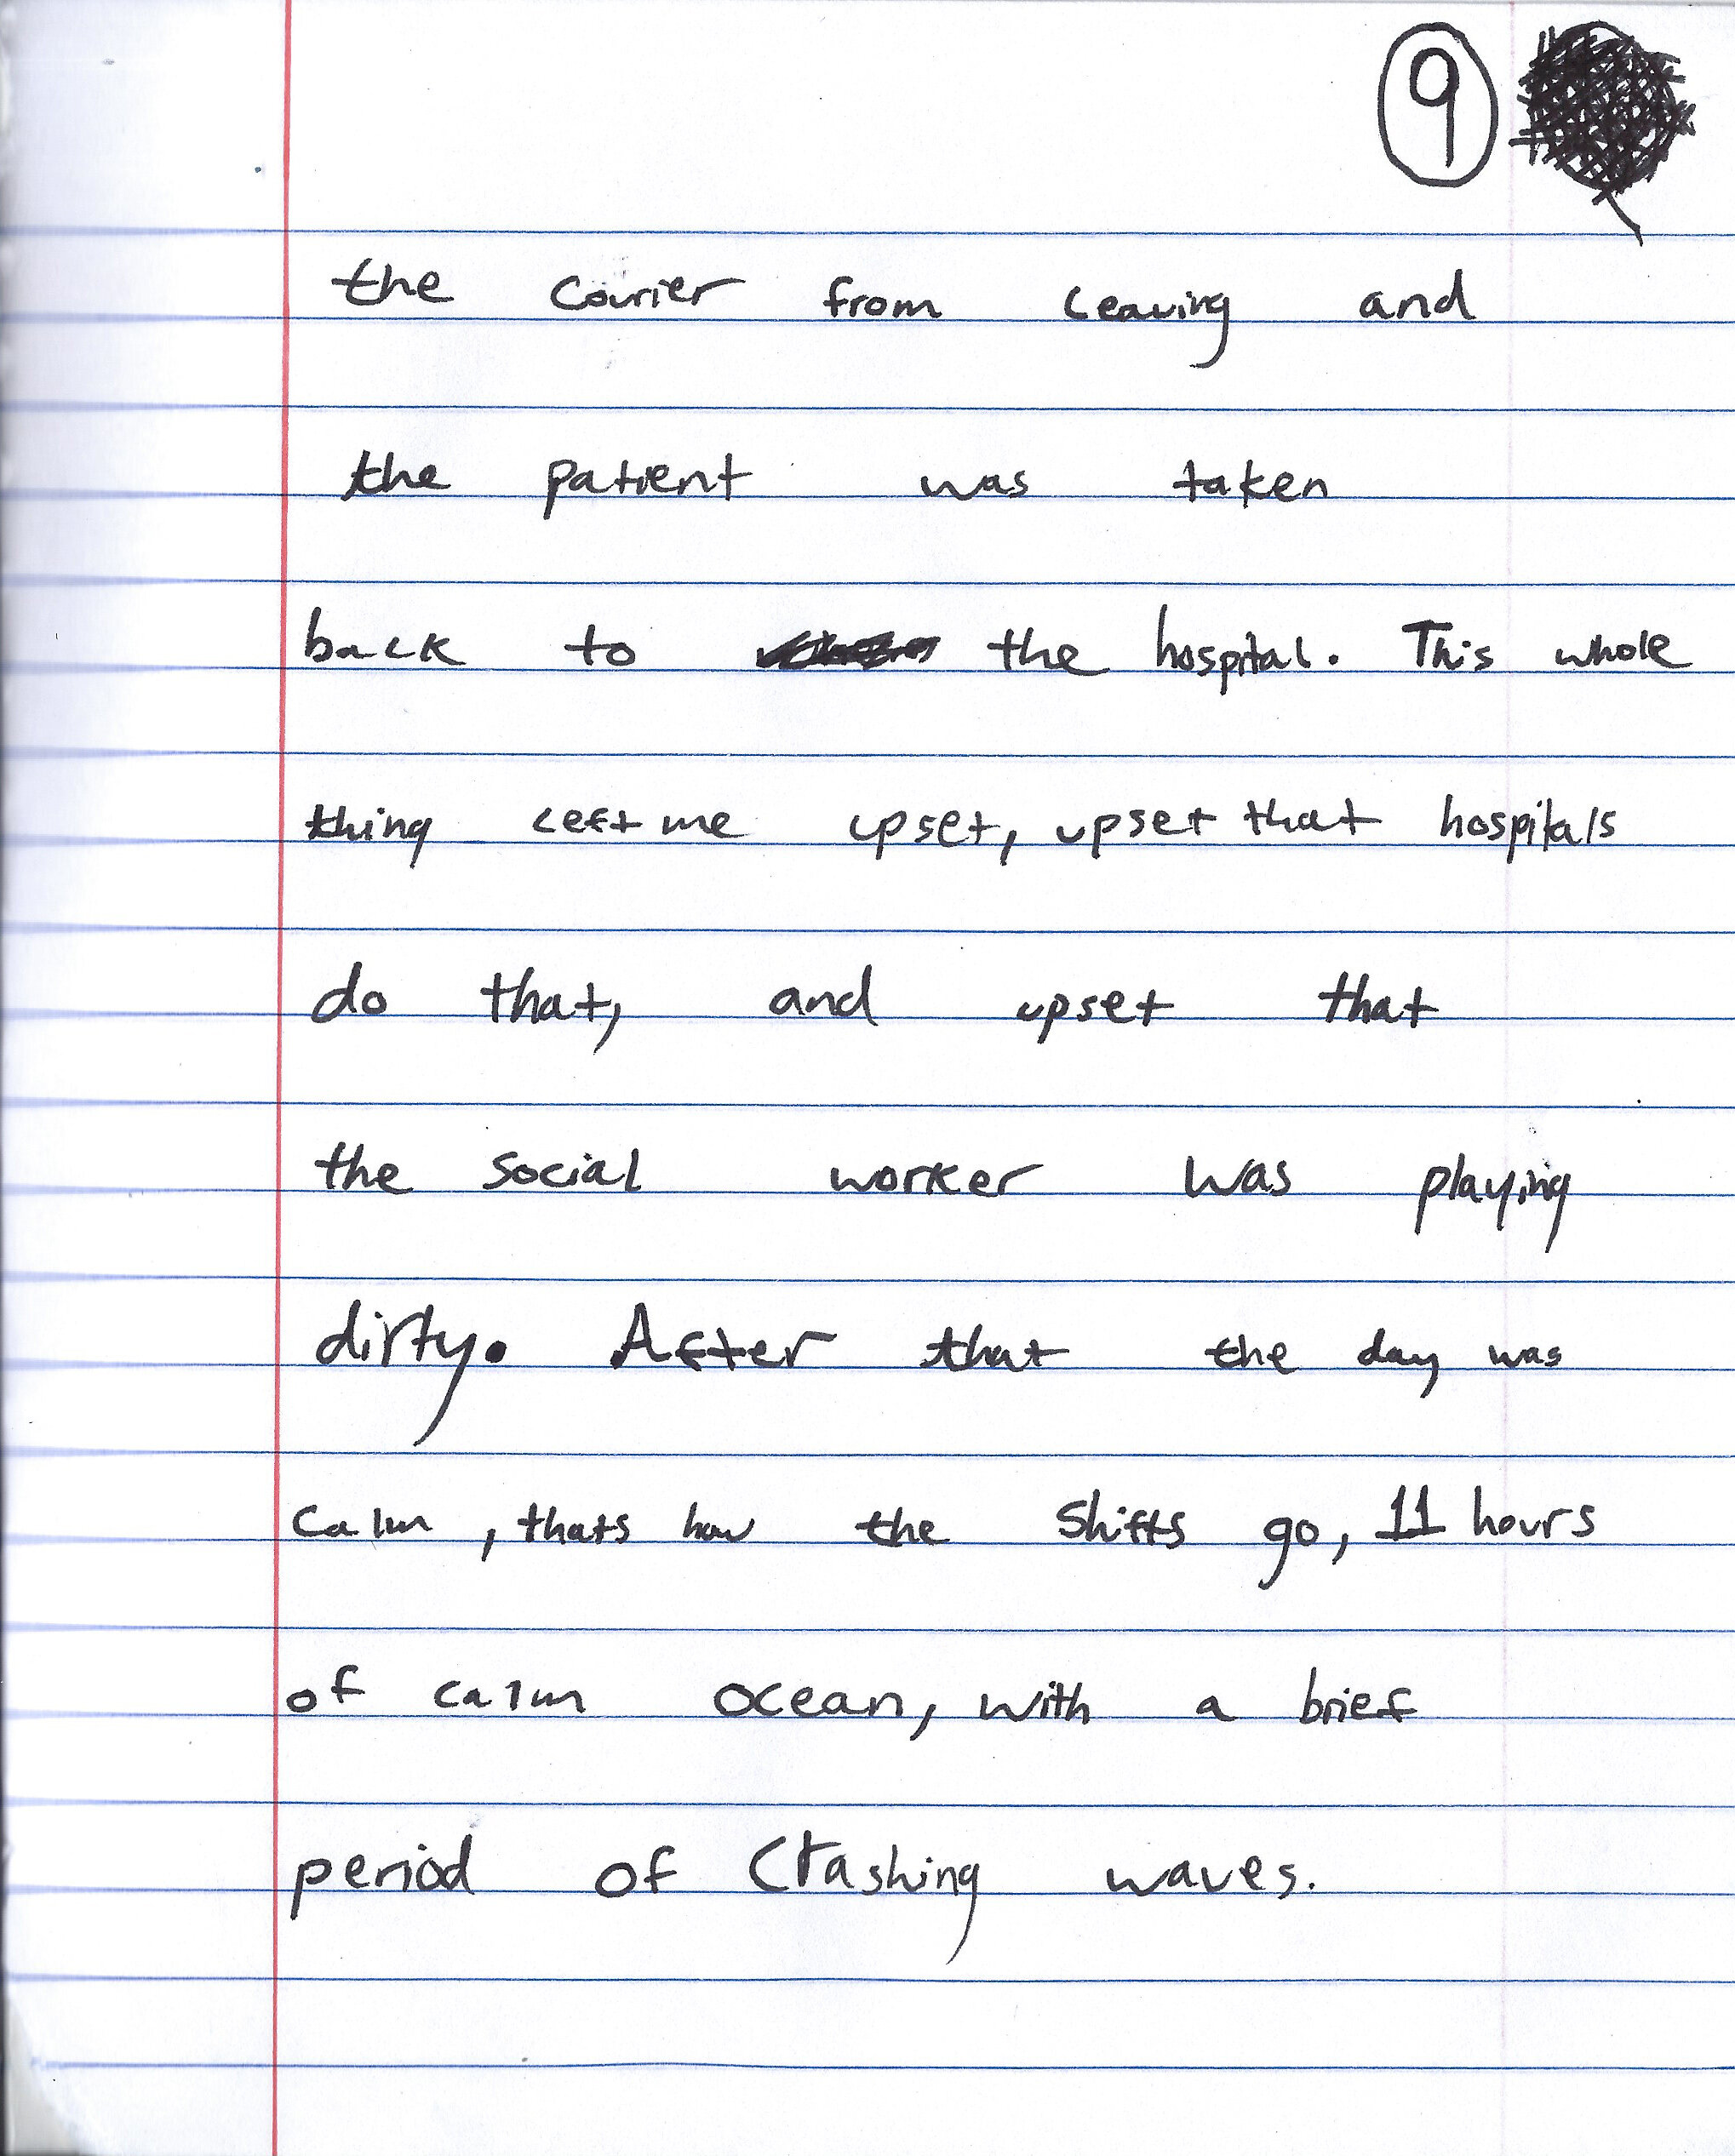 9
the courier from leaving and
the patient was taken
back to the hospital. This whole
thing left me upset, upset that hospitals
do that, and upset that
the social worker was playing
dirty. After that the day was
calm, thats how the shifts go, 11 hours
of calm ocean, with a brief
period of Crashing waves.